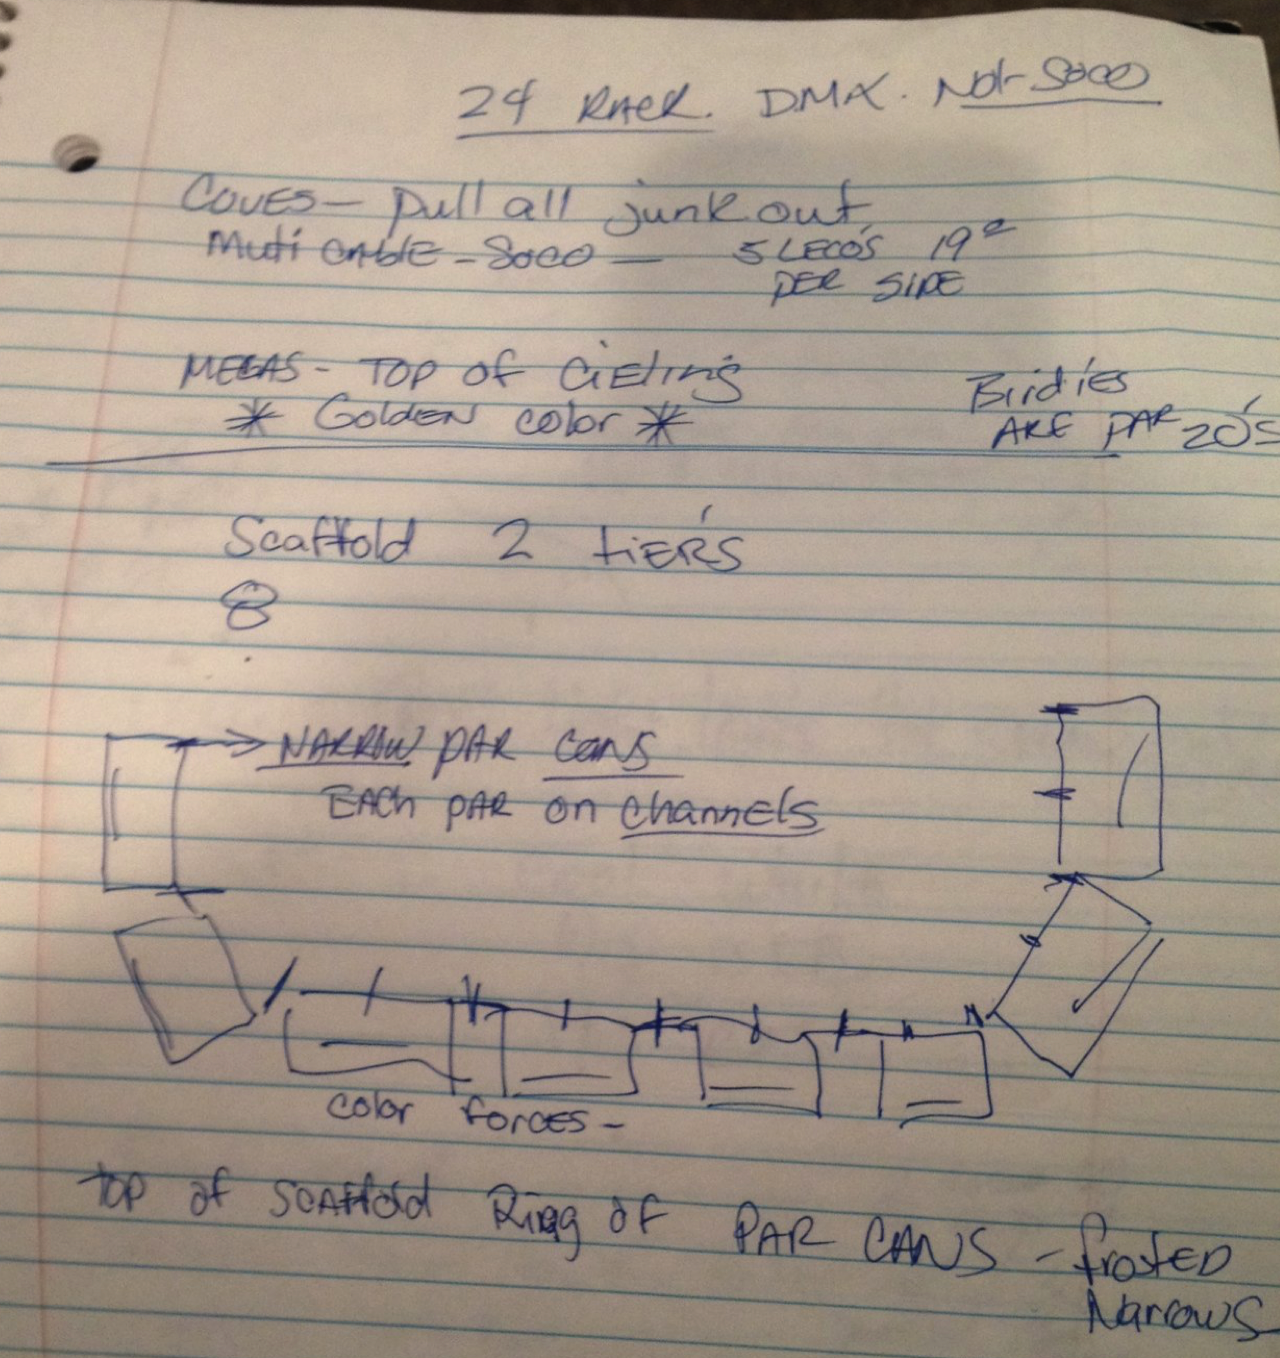 24 RACK. DMX. Not Soco
COVES - pull all junk out,
Muti CABLE - Soco — 5 LECO'S 19°
PER SIDE
MEGAS - TOP OF CiELing
* Golden color *
Birdies
ARE PAR 20'S
Scaffold 2 tiER'S
8
NARROW PAR CANS
EACh PAR on channels
color forces -
TOP of SCAffold Ring of PAR CANS - frosted
Narrows